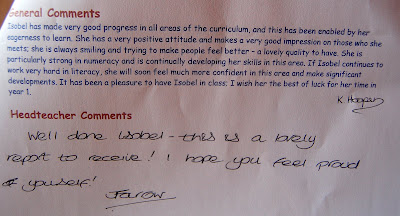 General Comments
Isobel has made very good progress in all areas of the curriculum, and this has been enabled by her
eagerness to learn. She has a very positive attitude and makes a very good impression on those who she
meets; she is always smiling and trying to make people feel better - a lovely quality to have. She is
particularly strong in numeracy and is continually developing her skills in this area. If Isobel continues to
work very hard in literacy, she will soon feel much more confident in this area and make significant
developments. It has been a pleasure to have Isobel in class; I wish her the best of luck for her time in
year 1.
K
Headteacher Comments
Well done Isobel - this is a lovely
report to receive! I hope you feel proud
of yourself!